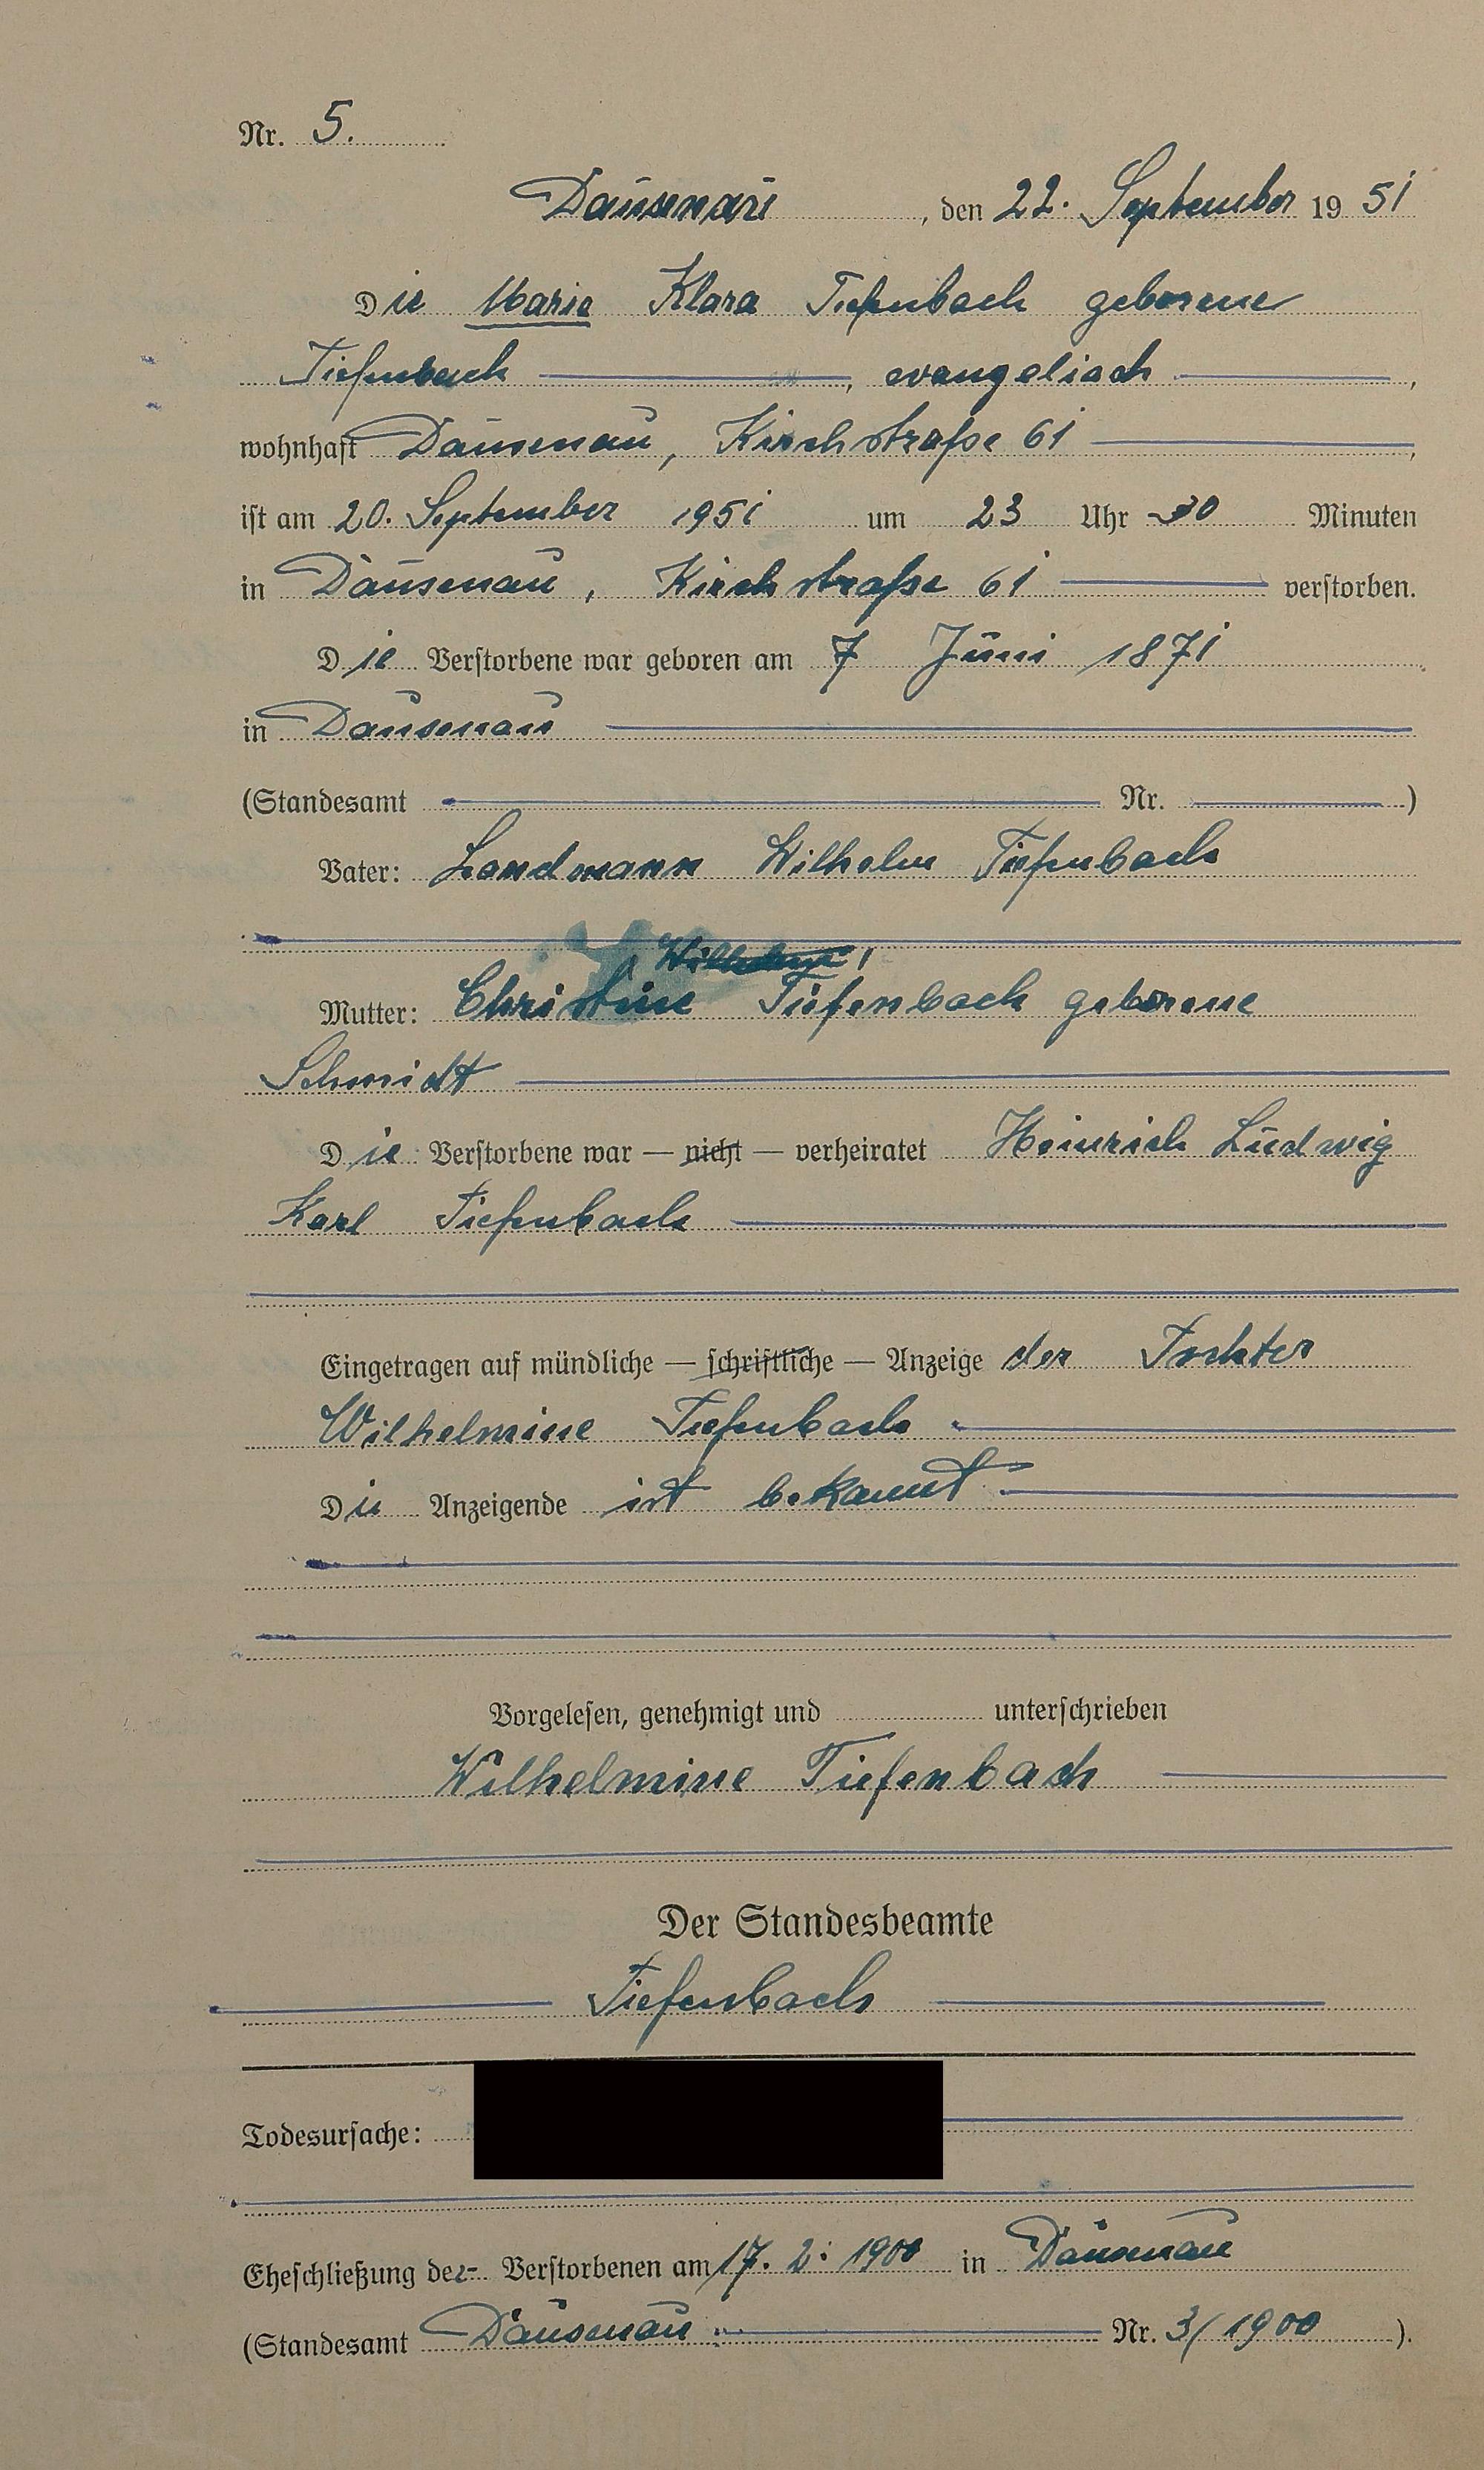 Nr. 5.
Dausenau, den 22. September 1951
Die Maria Klara Tiefenbach geborene
Tiefenbach, evangelisch,
wohnhaft Dausenau, Kirchstraße 61,
ist am 20. September 1951 um 23 Uhr 30 Minuten
in Dausenau, Kirchstraße 61 verstorben.
Die Verstorbene war geboren am 7 Juni 1871
in Dausenau
(Standesamt Nr. )
Vater: Landmann Wilhelm Tiefenbach
Mutter: Christine Tiefenbach geborene
Schmidt
Die Verstorbene war — nicht — verheiratet Heinrich Ludwig
Karl Tiefenbach
Eingetragen auf mündliche — schriftliche — Anzeige der Tochter
Wilhelmine Tiefenbach
Die Anzeigende ist bekannt
Vorgelesen, genehmigt und unterschrieben
Wilhelmine Tiefenbach
Der Standesbeamte
Tiefenbach
Todesursache:
Eheschließung der Verstorbenen am 17. 2. 1900 in Dausenau
(Standesamt Dausenau Nr. 3/1900).